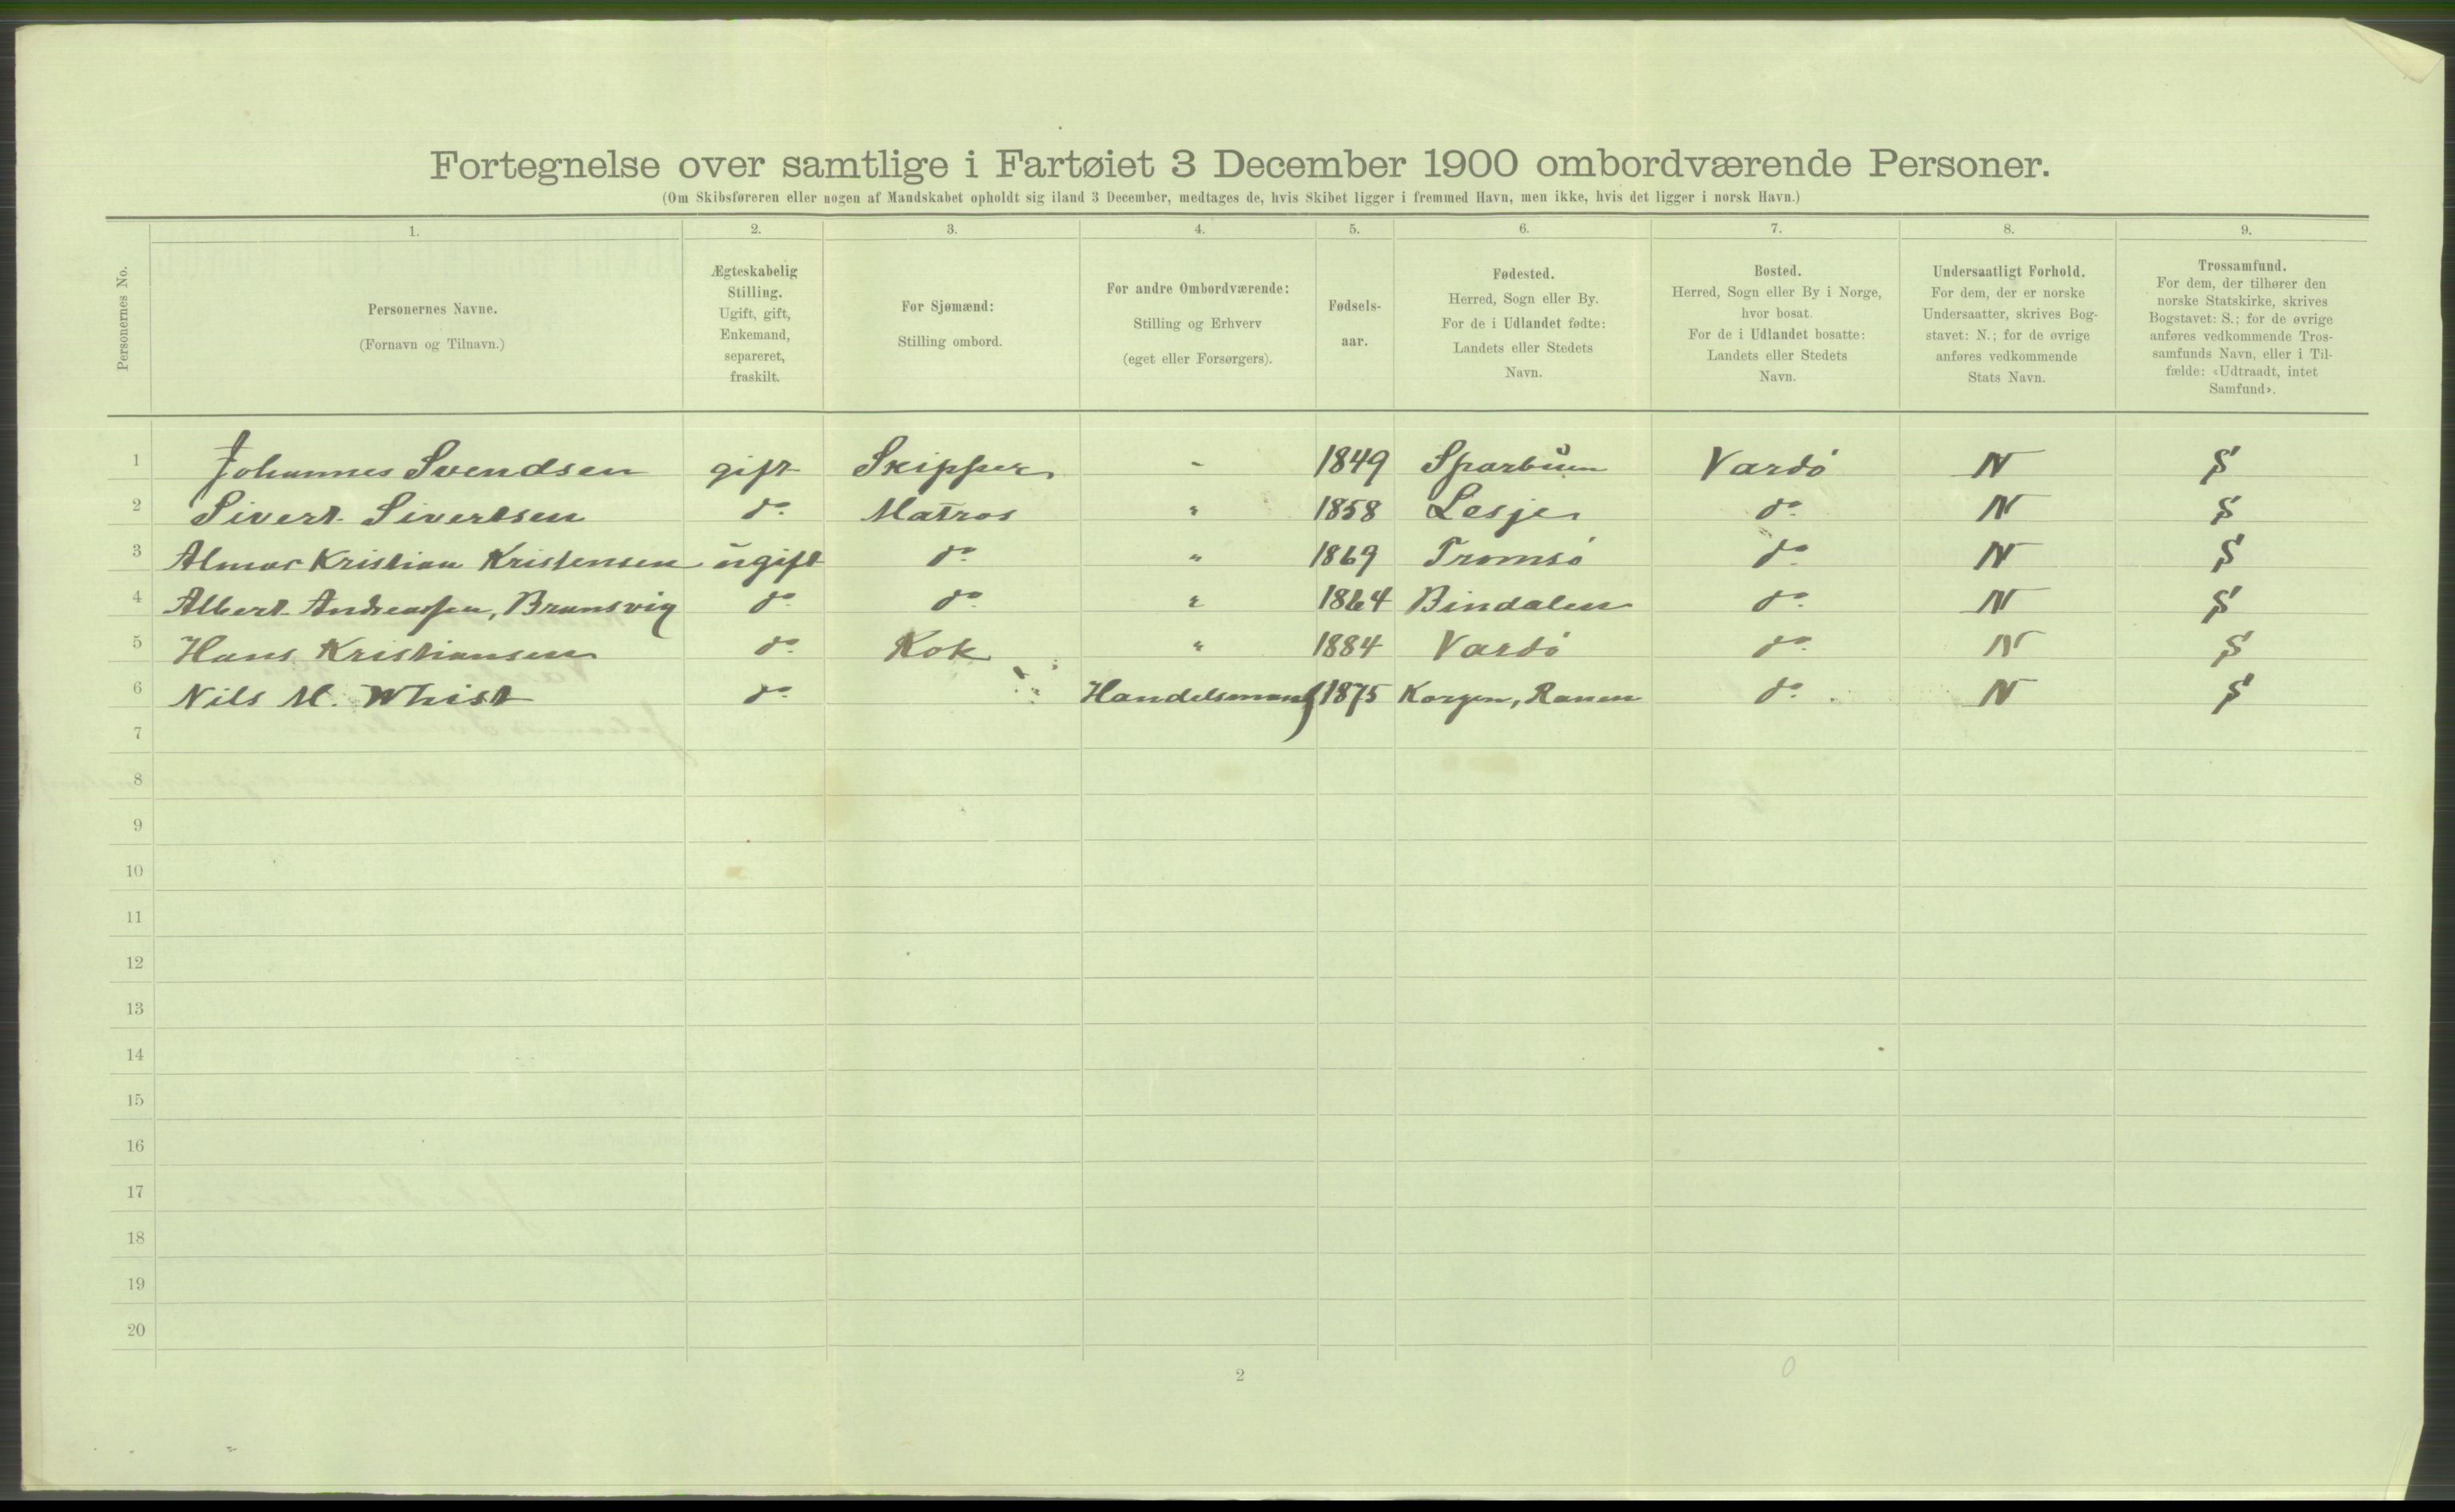 Fortegnelse over samtlige i Fartøiet 3 December 1900 ombordværende Personer.
(Om Skibsføreren eller nogen af Mandskabet opholdt sig iland 3 December, medtages de, hvis Skibet ligger i fremmed Havn, men ikke, hvis det ligger i norsk Havn.)
Personernes No.
1.
Personernes Navne.
(Fornavn og Tilnavn.)
2.
Ægteskabelig
Stilling.
Ugift, gift,
Enkemand,
separeret,
fraskilt.
3.
For Sjømænd:
Stilling ombord.
4.
For andre Ombordværende:
Stilling og Erhverv
(eget eller Forsørgers).
5.
Fødsels-
aar.
6.
Fødested.
Herred, Sogn eller By.
For de i Udlandet fødte:
Landets eller Stedets
Navn.
7.
Bosted.
Herred, Sogn eller By i Norge,
hvor bosat.
For de i Udlandet bosatte:
Landets eller Stedets
Navn.
8.
Undersaatligt Forhold.
For dem, der er norske
Undersaatter, skrives Bog-
stavet: N.; for de øvrige
anføres vedkommende
Stats Navn.
9.
Trossamfund.
For dem, der tilhører den
norske Statskirke, skrives
Bogstavet: S.; for de øvrige
anføres vedkommende Tros-
samfunds Navn, eller i Til-
fælde: «Udtraadt, intet
Samfund».
1 Johannes Svendsen gift Skipper - 1849 Sparbuen Vardö N S
2 Sivert Sivertsen do Matros " 1858 Lesje do N S
3 Almar Kristian Kristensen ugift do " 1869 Tromsö do N S
4 Albert Andreassen, Brunsvig do do " 1864 Bindalen do N S
5 Hans Kristiansen do Kok " 1884 Vardö do N S
6 Nils M. Whist do " Handelsmand 1875 Korgen, Ranen do N S
7
8
9
10
11
12
13
14
15
16
17
18
19
20
2
0